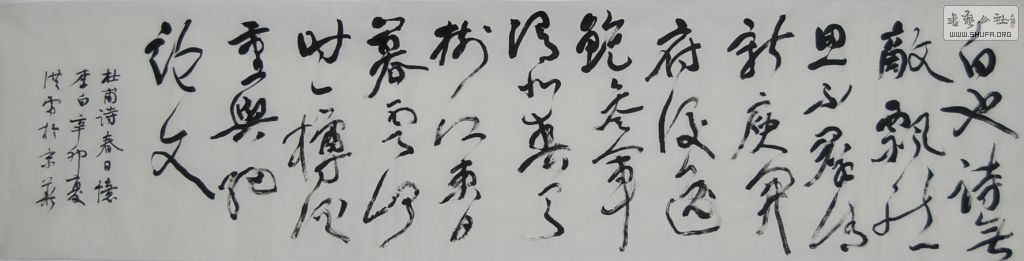 白也诗无
敵飘然
思不群清
新庾開
府俊逸
鲍参军
渭北春天
树江东日
暮雲何
时一樽酒
重與细
论文
杜甫诗春日憶
李白辛卯夏
洪於京華
書藝公社
WWW.SHUFA.ORG